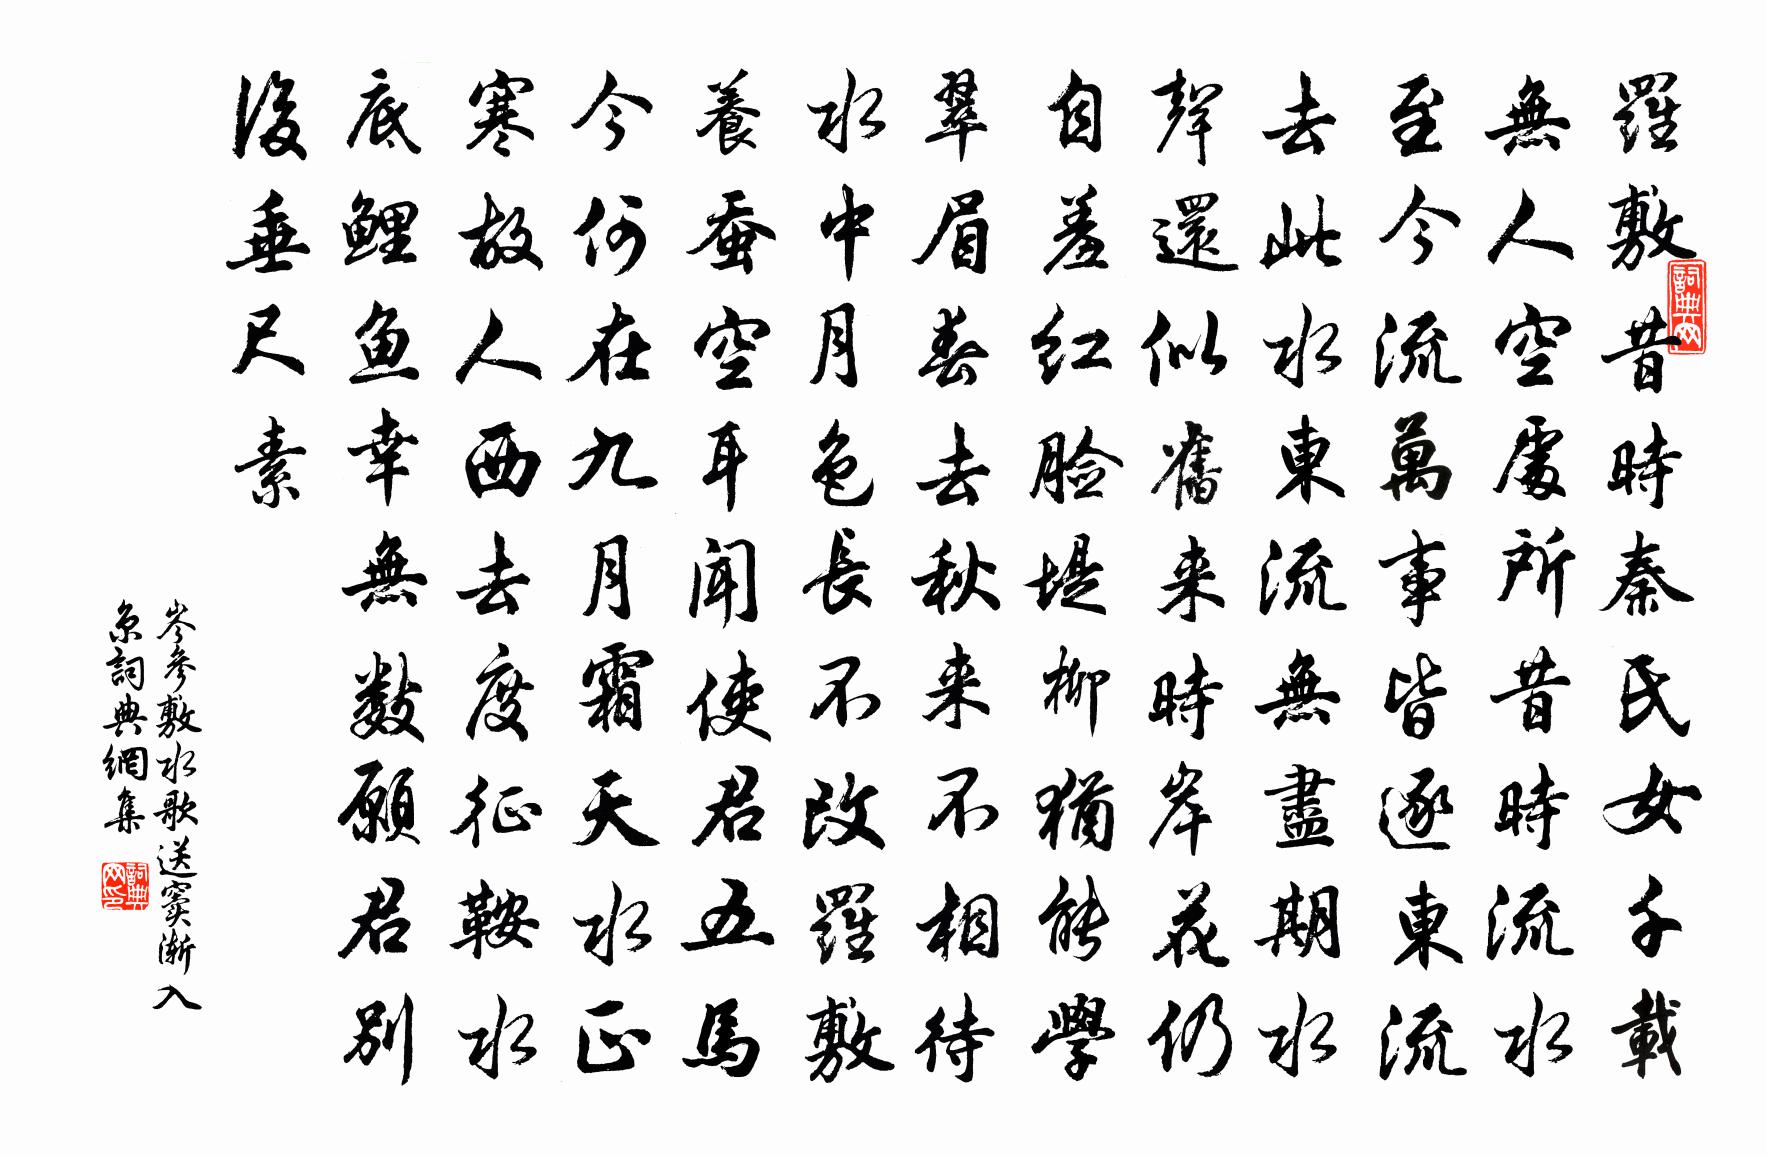 羅敷昔時秦氏女千載
無人空處所昔時流水
至今流萬事皆逐東流
去此水東流無盡期水
聲還似舊来時岸花仍
自羞紅臉堤柳猶能學
翠眉春去秋来不相待
水中月色長不改羅敷
養蚕空耳聞使君五馬
今何在九月霜天水正
寒故人西去度征鞍水
底鯉魚幸無數願君別
後垂尺素
岑參敷水歌送窦漸入
京詞典網集
詞典网
詞典网印